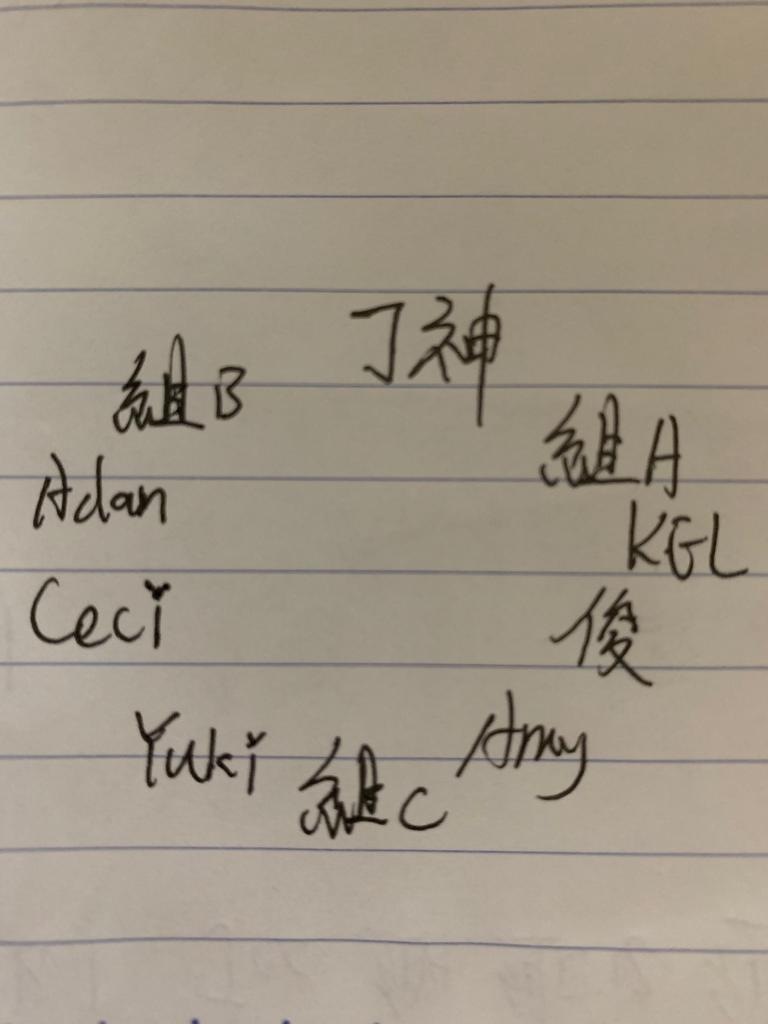 丁神
組B
組A
Adan
KGL
Ceci
俊
Yuki
Amy
組C